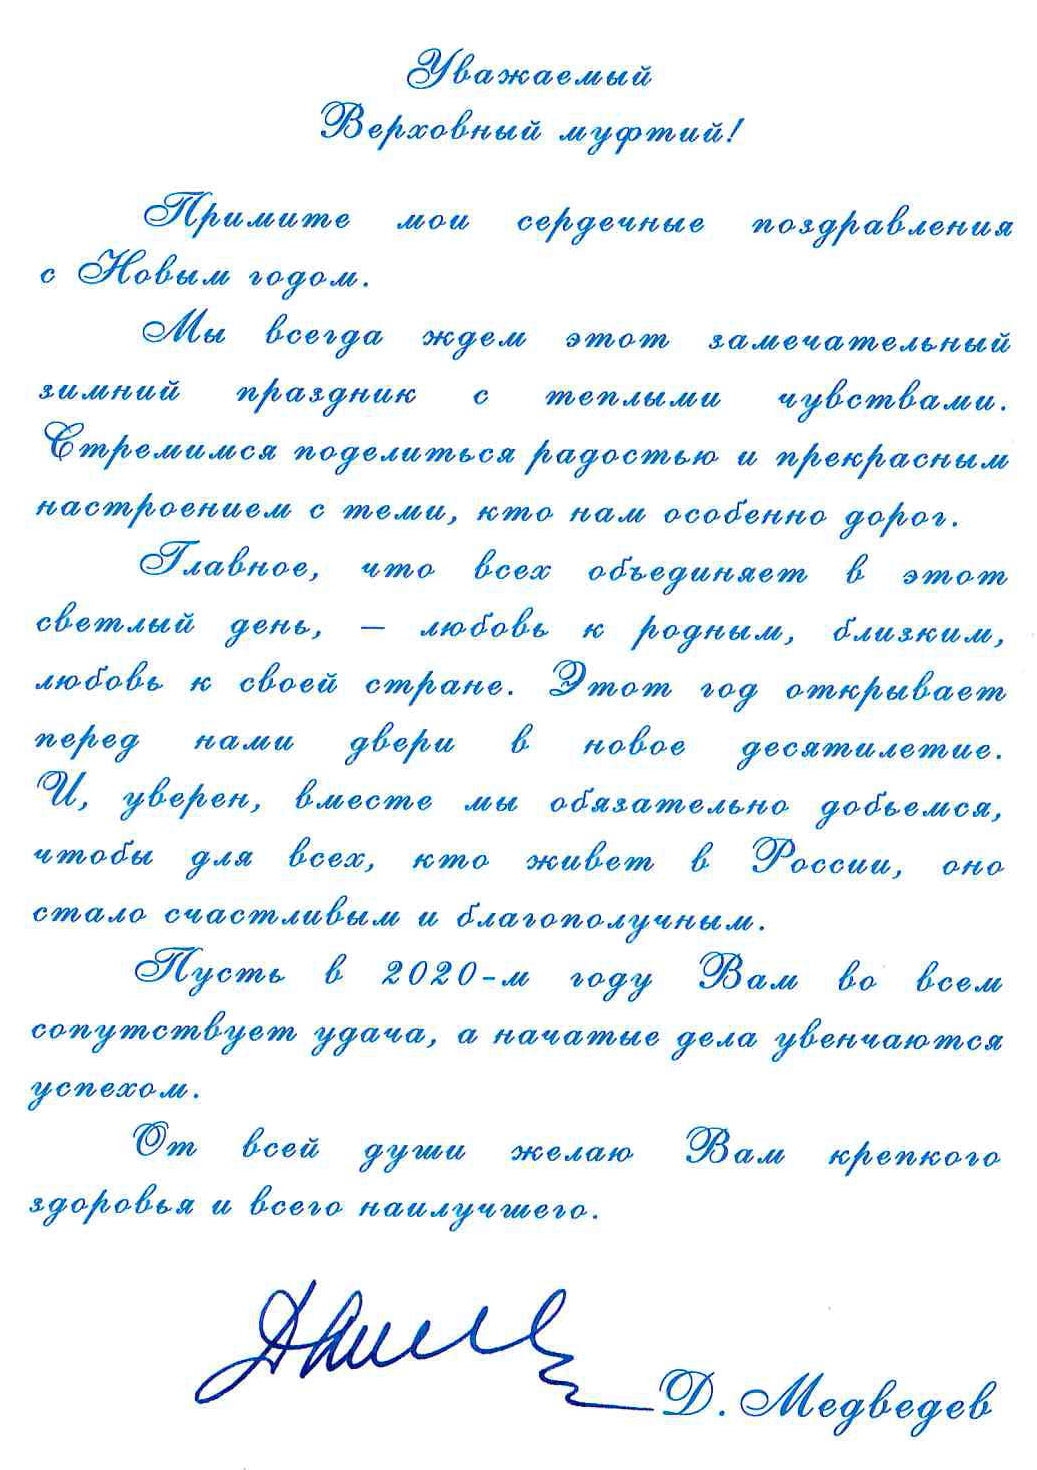 Уважаемый
Верховный муфтий!
Примите мои сердечные поздравления
с Новым годом.
Мы всегда ждем этот замечательный
зимний праздник с теплыми чувствами.
Стремимся поделиться радостью и прекрасным
настроением с теми, кто нам особенно дорог.
Главное, что всех объединяет в этот
светлый день, – любовь к родным, близким,
любовь к своей стране. Этот год открывает
перед нами двери в новое десятилетие.
И, уверен, вместе мы обязательно добьемся,
чтобы для всех, кто живет в России, оно
стало счастливым и благополучным.
Пусть в 2020-м году Вам во всем
сопутствует удача, а начатые дела увенчаются
успехом.
От всей души желаю Вам крепкого
здоровья и всего наилучшего.
Д. Медведев